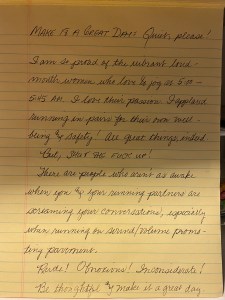 Make it a Great Day! Quiet, please!
I am so proud of the vibrant loud-
mouth women who love to jog at 5:00 -
5:45 AM. I love their passion. I applaud
running in pairs for their own well-
being & safety! All great things, indeed.
But, SHUT THE FUCK UP!
There are people who aren't as awake
when you & your running partners are
screaming your conversations, especially
when running on sound/volume promo-
ting pavement.
Rude! Obnoxious! Inconsiderate!
Be thoughtful & make it a great day